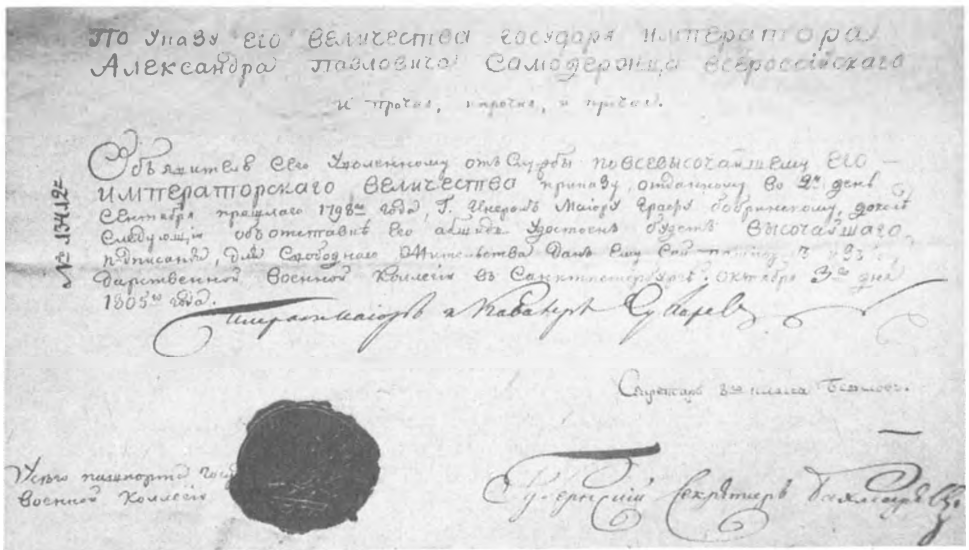 По Указу его величества государя императора
Александра Павловича Самодержца всероссійскаго
и прочая, и прочая, и прочая.
Объявитель сего Уволенному отъ Службы по всевысочайшему его
императорскаго величества приказу, отданному во 2й день
Сентября прошлаго 1798го года, Г. Генералъ Маіору Графу Бобринскому, доколѣ
Следующій объ отставкѣ Его абшидъ Удостоенъ будетъ высочайшаго
подписанія, для Свободнаго Жительства данъ Ему Сей изъ Госу
дарственной Военной Коллегіи въ Санктпетербургѣ, Октября 3го дня
1805го года.
№ 13412
Генералъ маіоръ и Кавалеръ
Секретарь 8го класса
У сего пашпорта
Военной Коллегіи
Губернскій Секретарь